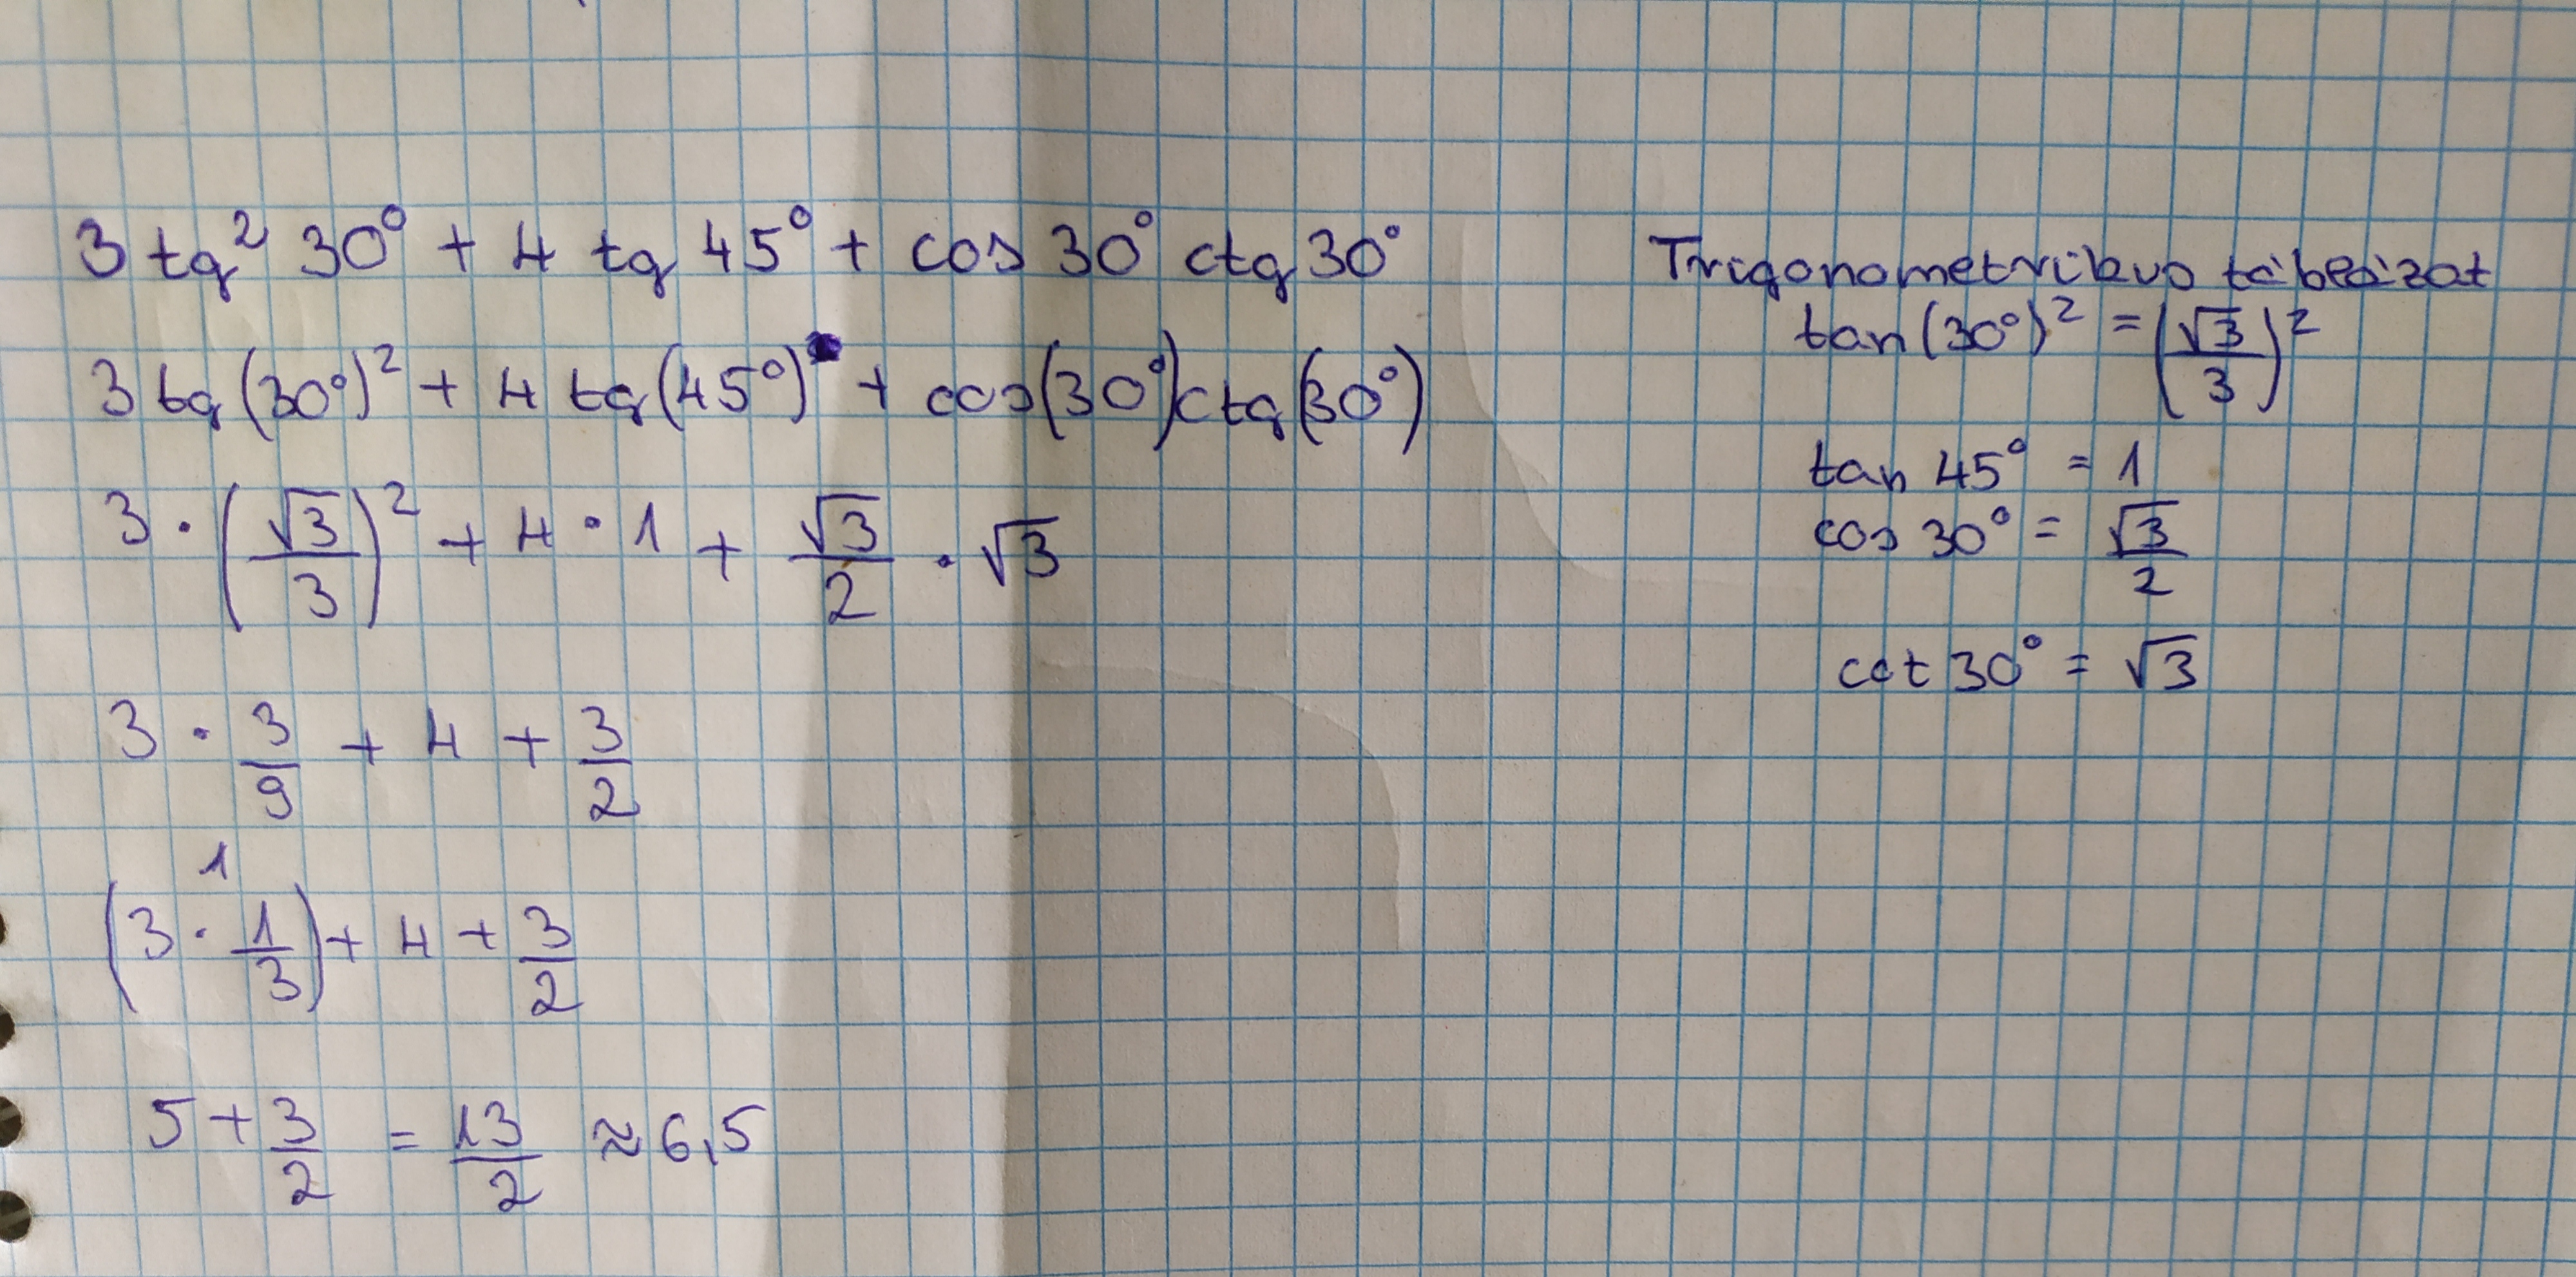 3 tg² 30° + 4 tg 45° + cos 30° ctg 30°
3 tg (30°)² + 4 tg (45°) + cos(30°)ctg(30°)
3 · (√3/3)² + 4 · 1 + √3/2 · √3
3 · 3/9 + 4 + 3/2
1
(3 · 1/3) + 4 + 3/2
5 + 3/2 = 13/2 ≈ 6,5
Trigonometrikus táblázat
tan (30°)² = (√3/3)²
tan 45° = 1
cos 30° = √3/2
cot 30° = √3